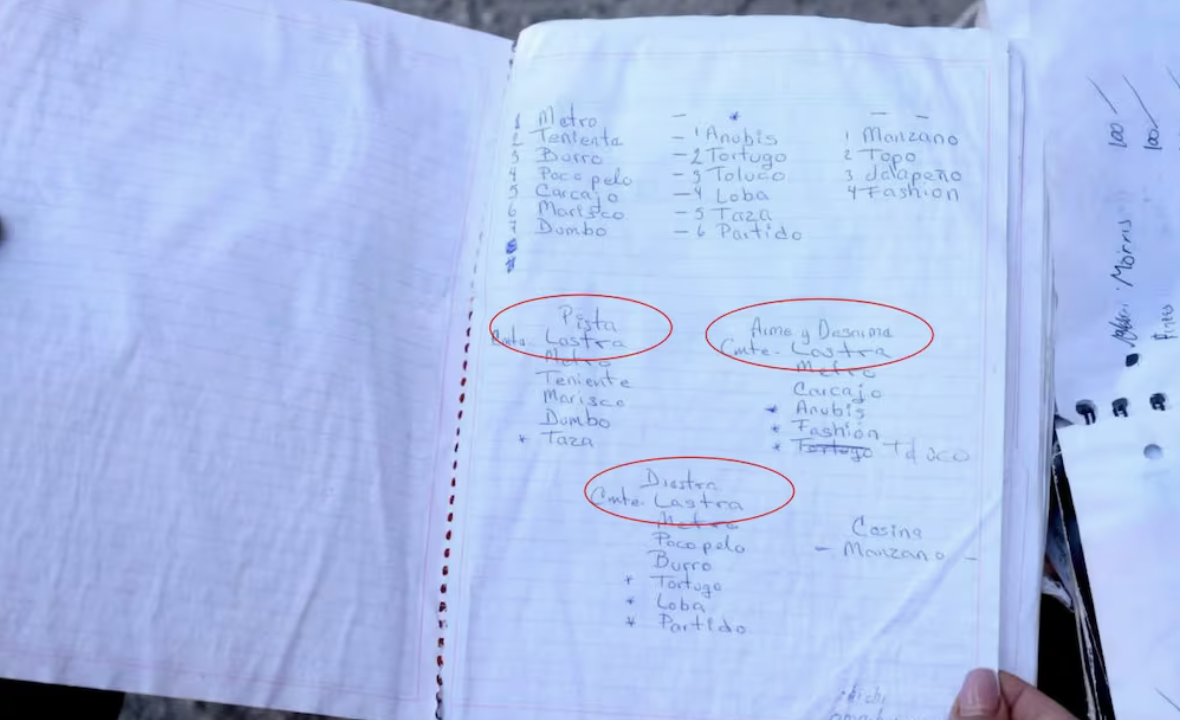 1 Metro
2 Teniente
3 Burro
4 Poco pelo
5 Carcajo
6 Marisco
7 Dumbo
8
- *
- 1 Anubis
- 2 Tortugo
- 3 Toluco
- 4 Loba
- 5 Taza
- 6 Partido
- -
1 Manzano
2 Topo
3 Jalapeño
4 Fashion
Pista
Lastra
Metro
Teniente
Marisco
Dumbo
* Taza
Arme y Desarme
Cmte. Lastra
Metro
Carcajo
* Anubis
* Fashion
* Tortugo
Diestra
Cmte. Lastra
Metro
Poco pelo
Burro
* Tortugo
* Loba
* Partido
Cosina
- Manzano -
100
100
Morris